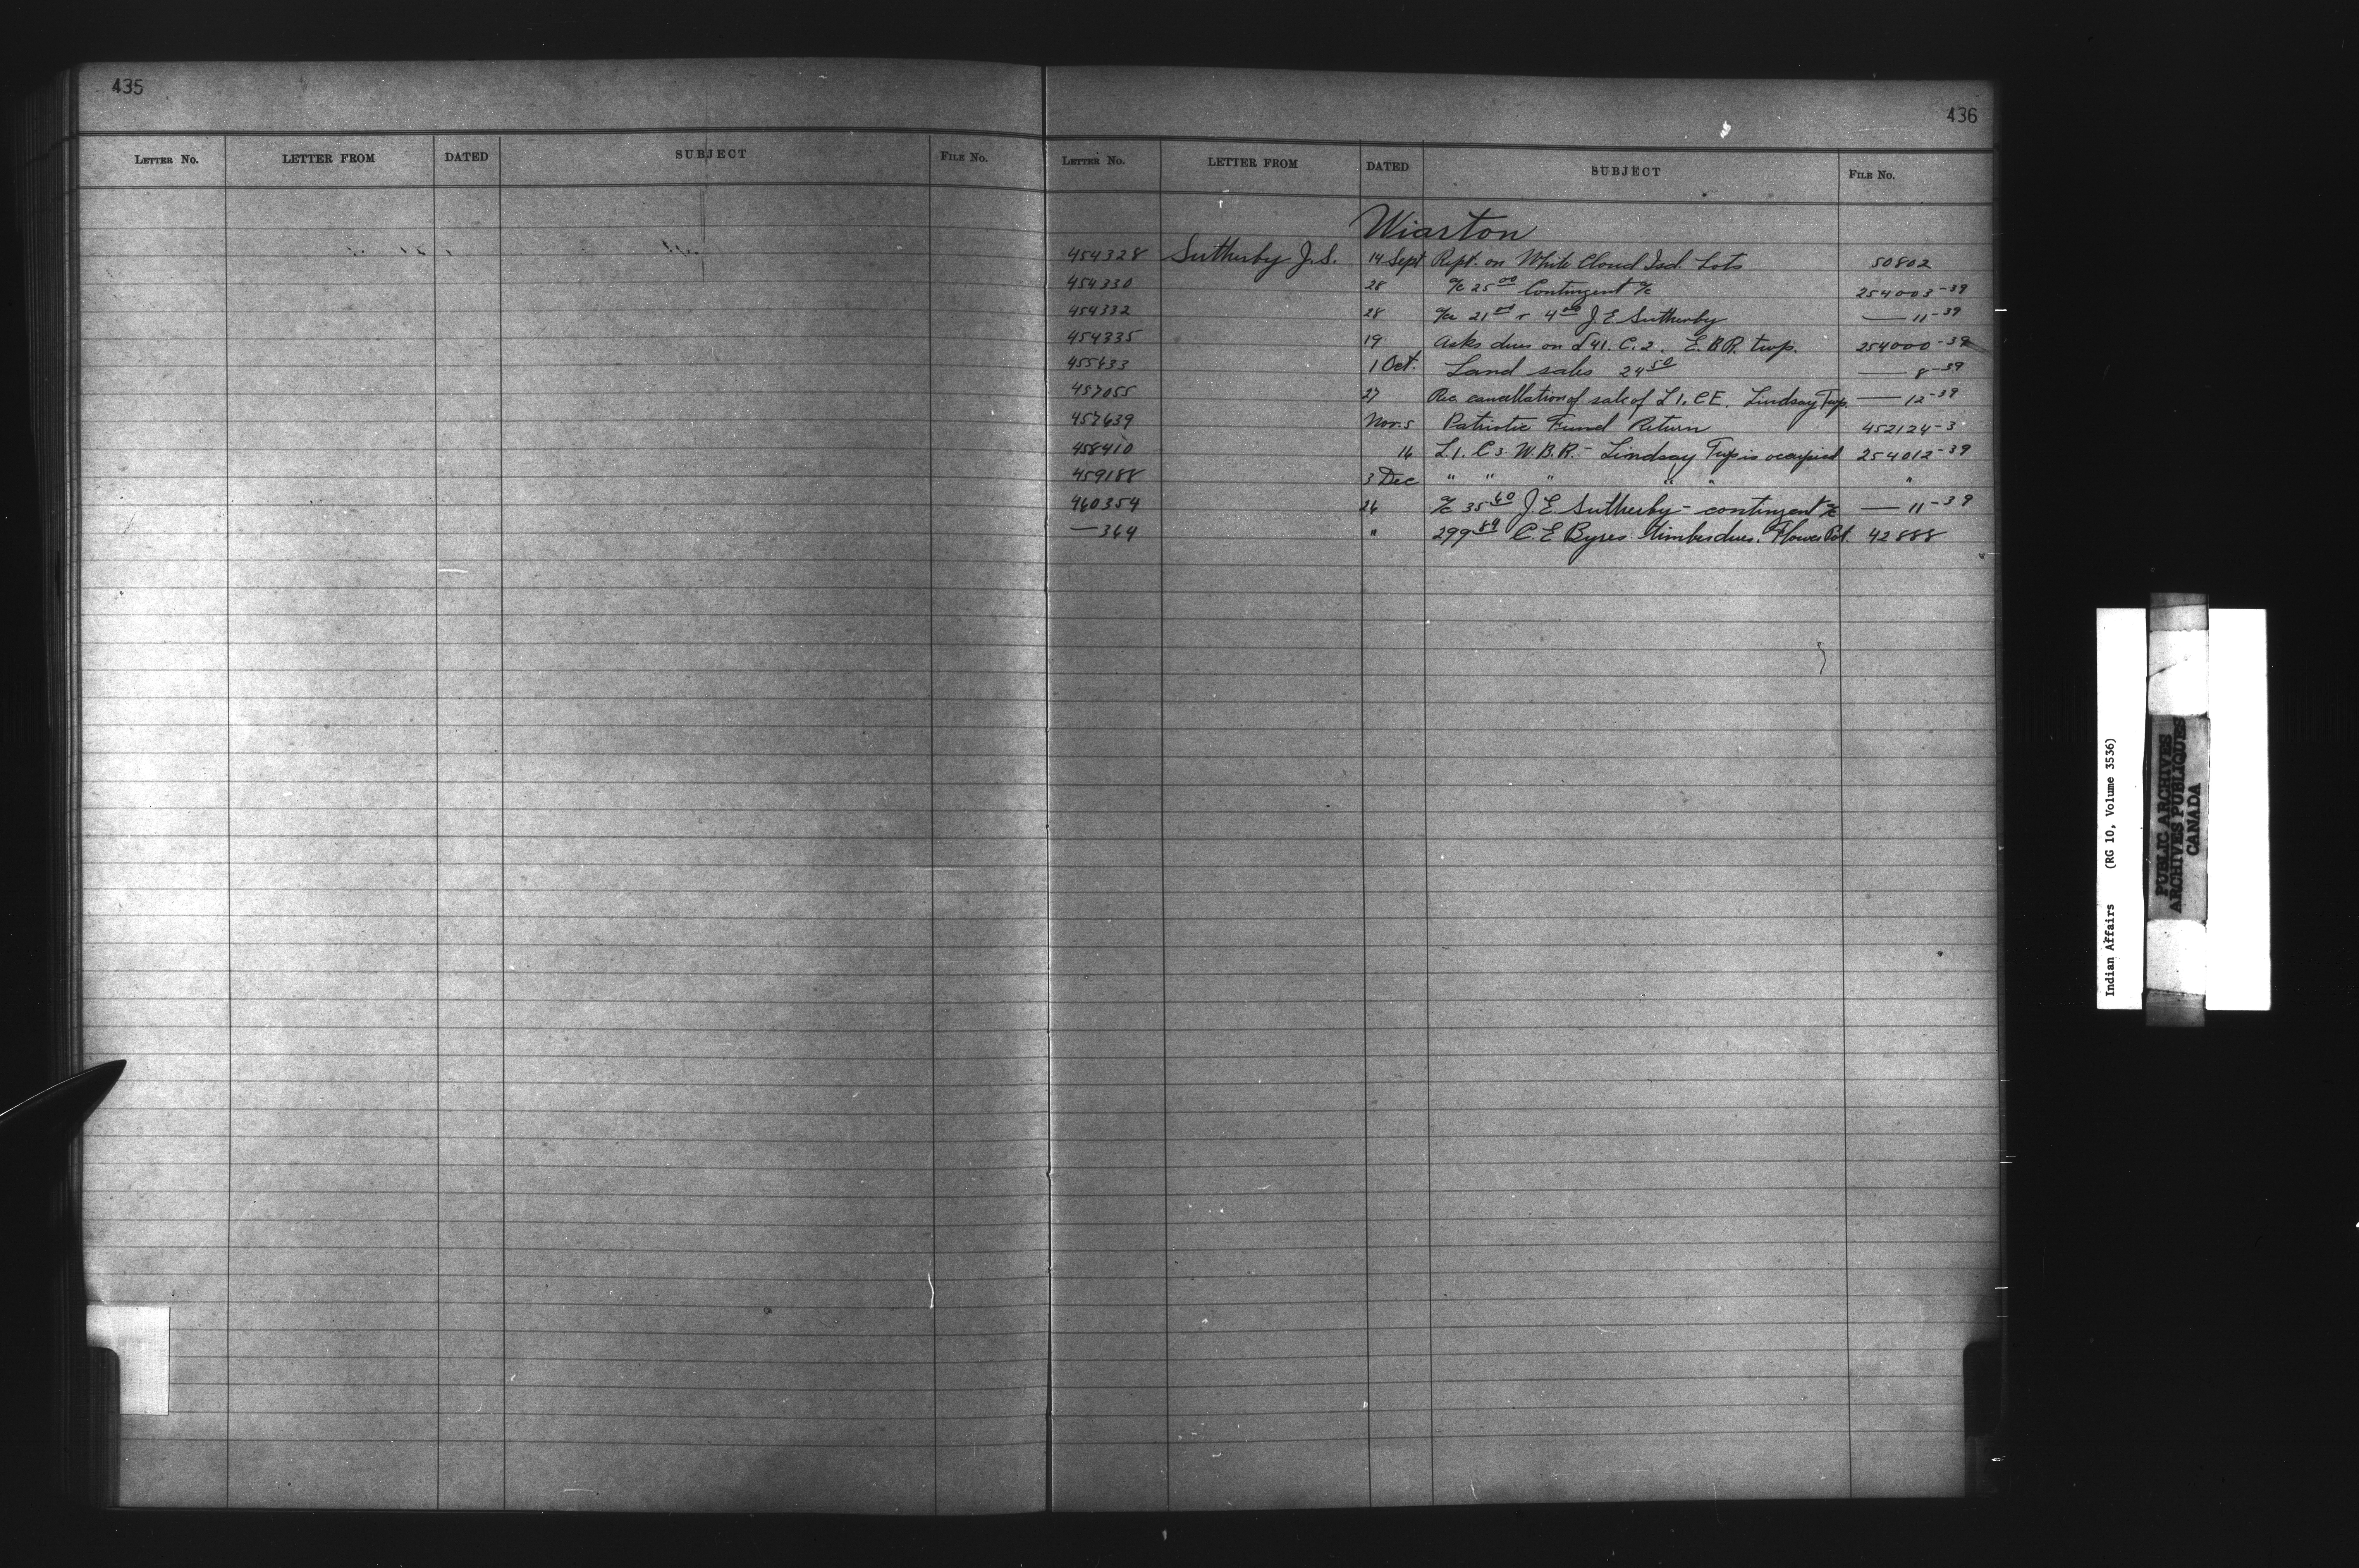 435
LETTER No. LETTER FROM DATED SUBJECT FILE No.
436
LETTER No. LETTER FROM DATED SUBJECT FILE No.
Wiarton
454328 Sutherby J.S. 14 Sept Rept. on White Cloud Isd. Lots 50802
454330 28 a/c 25 00 Contingent a/c 254003-39
454332 28 a/c 21 00 + 4 00 J. E. Sutherby — 11-39
454335 19 Asks dues on L 41. C. 2. E.B.R. twp. 254000-39
455433 1 Oct. Land sales 24 50 — 8-39
457055 27 Rec cancellation of sale of L 1. C E. Lindsay Twp. — 12-39
457639 Nov. 5 Patriotic Fund Return 452124-3
458410 16 L 1. C 3. W.B.R. - Lindsay Twp is occupied 254012-39
459188 3 Dec " " " " " "
460354 26 a/c 35 60 J E. Sutherby - contingent a/c — 11-39
— 364 " 299 89 C. E Byres timber dues. Flower Pot. 42888
Indian Affairs (RG 10, Volume 3536)
PUBLIC ARCHIVES
ARCHIVES PUBLIQUES
CANADA